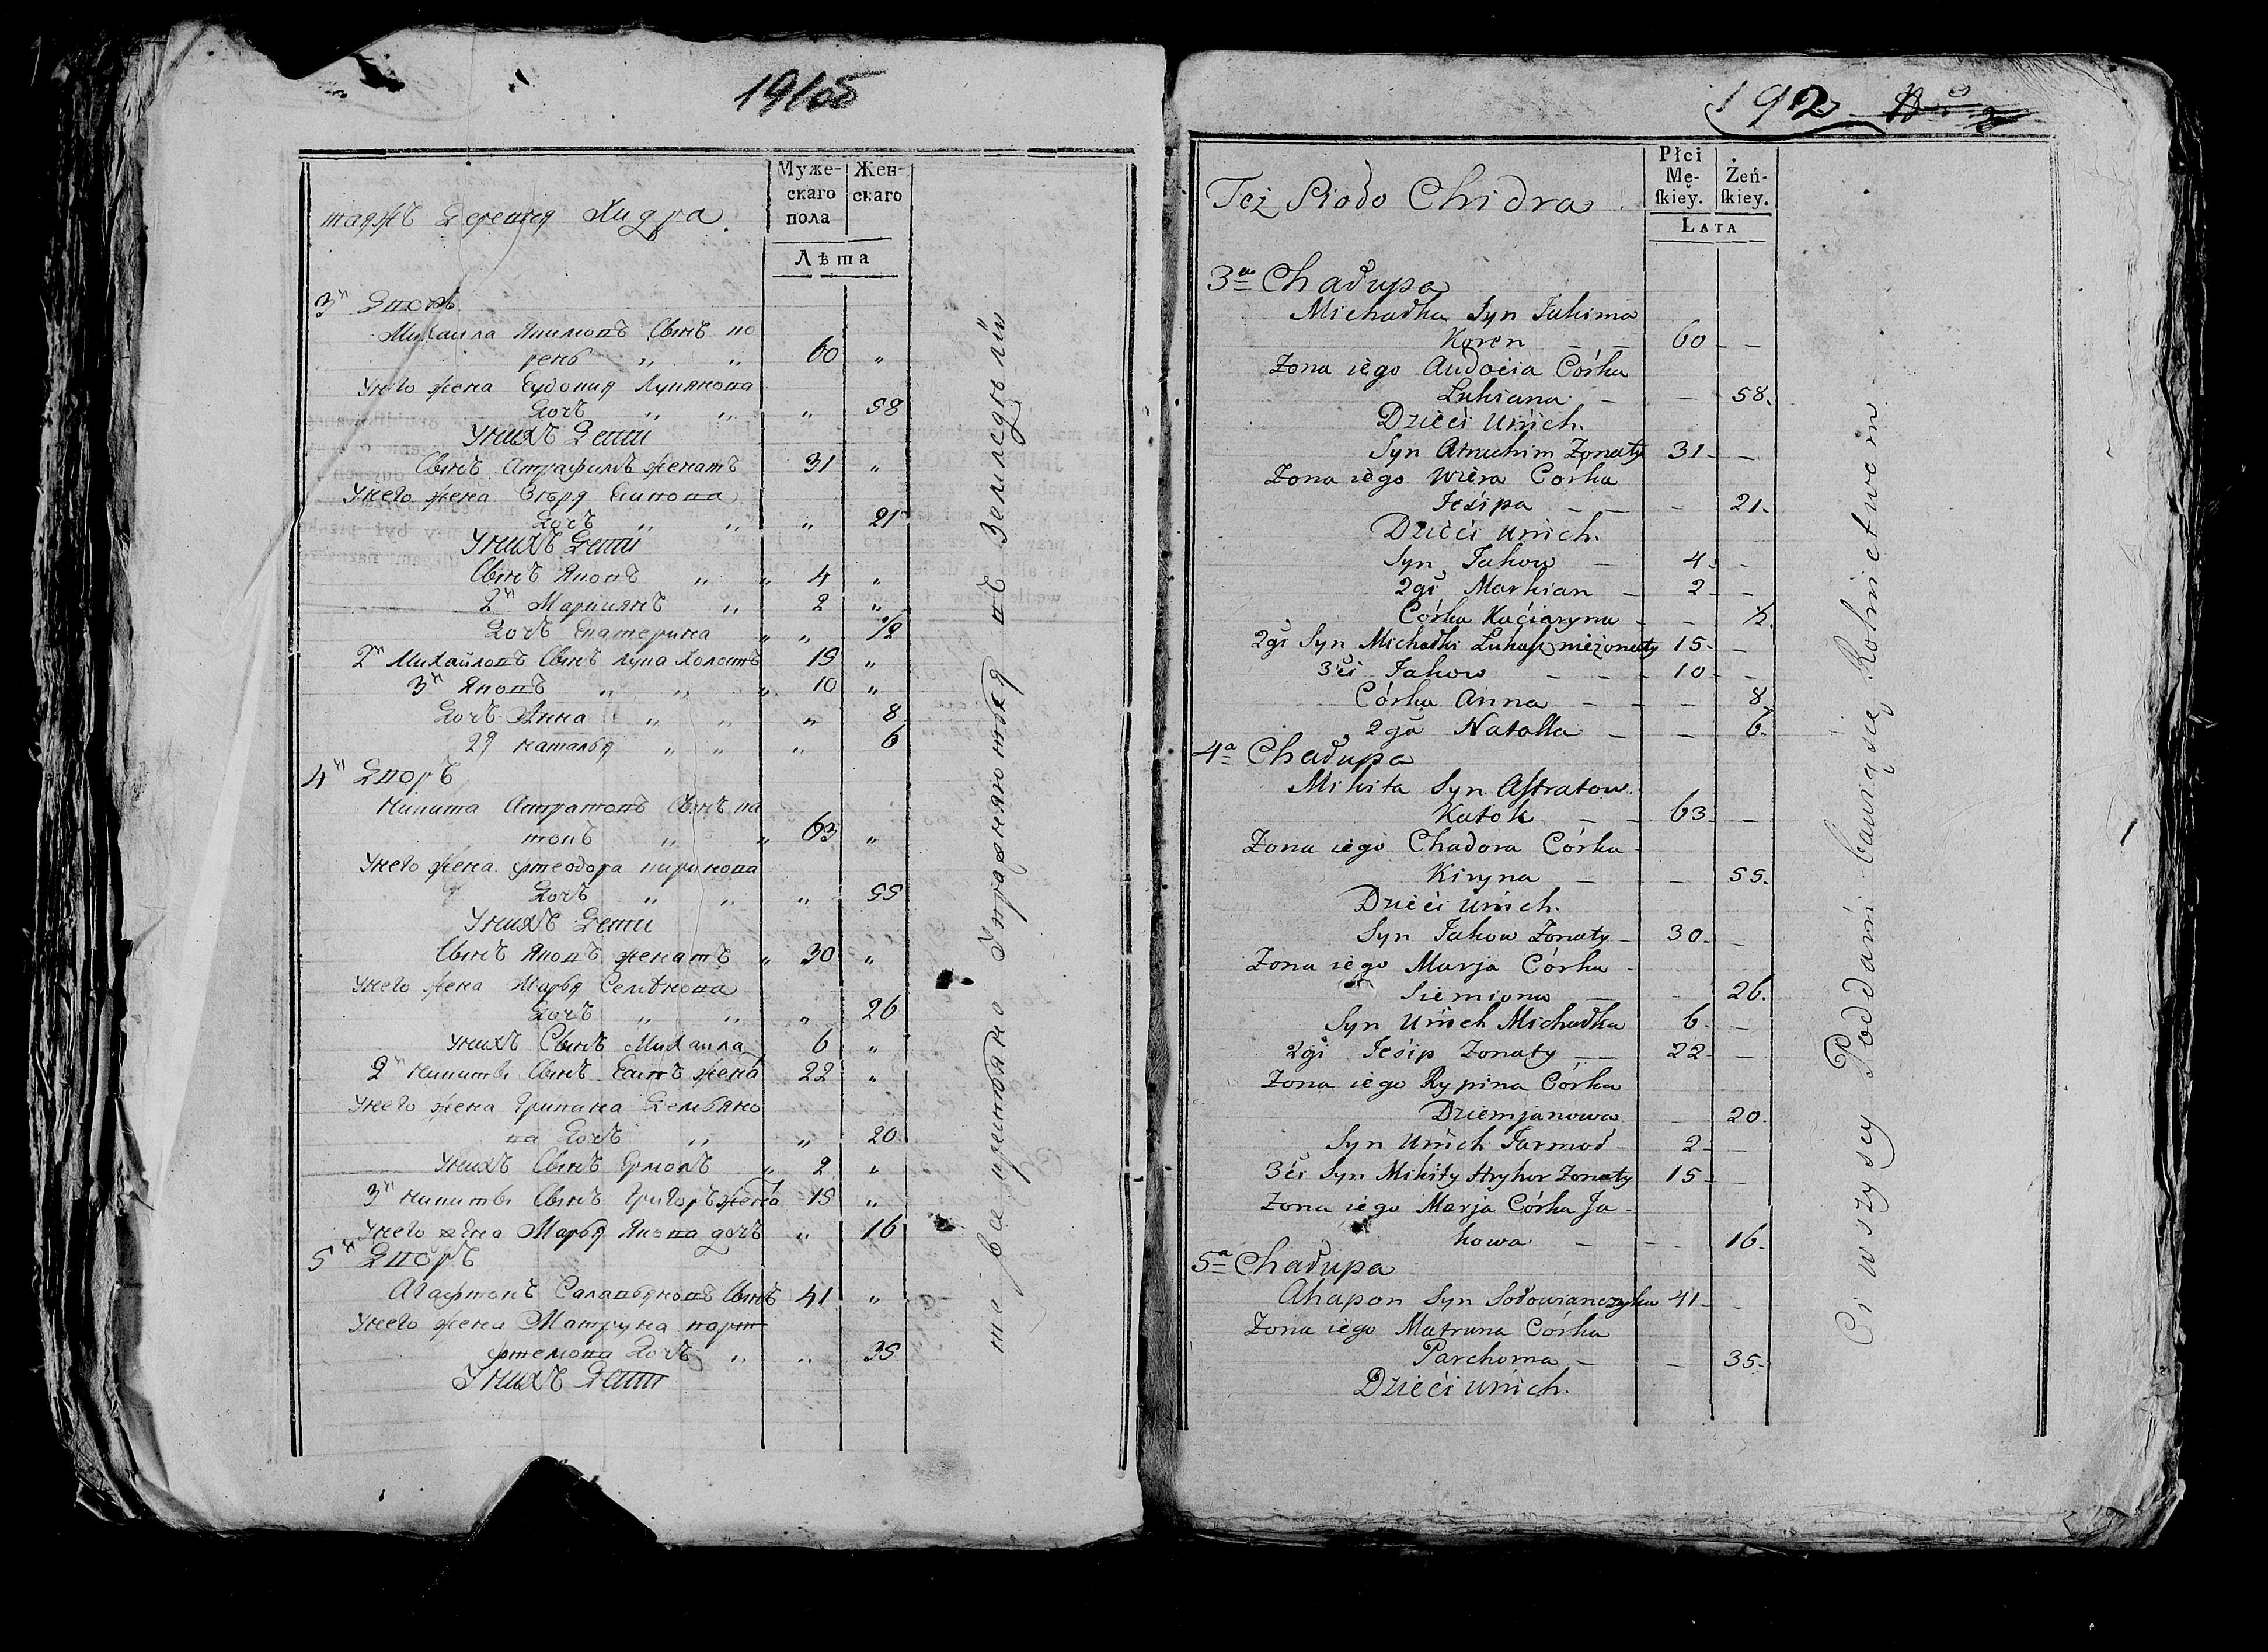 19
таяжъ Деревня Хидра
Муже-
скаго
пола
Жен-
скаго
Лѣта
3й Дворъ
Михаила Якимовъ Сынъ ко
рень " "
60 "
Унего жена Евдокия Лукянова
Дочъ " " " 58
Унихъ Дети
Сынъ Атрафимъ женатъ 31 "
Унего жена Вѣря Есипова
Дочъ " " " 21
Унихъ Дети
Сынъ Яковъ " " 4 "
2й Маркиянъ " 2 "
Дочъ Екатерина " " 1/2
2й Михайловъ Сынъ Лука Холостъ 15 "
3й Яковъ " " " 10 "
Дочъ Анна " " " 8
2я наталья " " " 6
4й Дворъ
Никита Астратовъ Сынъ ка
токъ " " 63 "
Унего жена фтеодора кирикова
Дочъ " " " 55
Унихъ Дети
Сынъ Яковъ женатъ " 30 "
Унего жена Марья Семѣнова
Дочъ " " " 26
Унихъ Сынъ Михаила 6 "
2й Никиты Сынъ Есипъ жена 22 "
Унего жена Грипина Демьяно
ва Дочъ " " 20
Унихъ Сынъ Ермолъ " 2 "
3й Никиты Сынъ Григоръ жена 15 "
Унего жена Марья Якова дочъ " 16
5й Дворъ
Агафтонъ Салавьяновъ Сынъ 41 "
Унего жена Матруна парт
фтемова Дочъ " " 35
Унихъ Дети
Упражняютъся въ Земледѣлїи
192
Też Sioło Chidra
Płci
Mę-
ſkiey.
Żeń-
ſkiey.
LATA
3a Chałupa
Michałka Syn Jakima
Koren — — 60 — —
Żona iego Audocia Córka
Lukiana — — 58.
Dzieci Unich.
Syn Atrachim Żonaty 31 — —
Żona iego Wiera Córka
Jesipa — — — 21.
Dzieci Unich.
Syn Jakow — 4 — —
2gi Markian — 2 — —
Córka Kaciaryna — — 1/2.
2gi Syn Michałki Lukasz nieżonaty 15 — —
3ci Jakow — — — 10 — —
Córka Anna — — — 8
2ga Natalla — — 6.
4a Chałupa
Mikita Syn Aſtratow
Katok — — 63 — —
Żona iego Chadora Córka
Kiryna — — 55.
Dzieci Unich.
Syn Jakow Żonaty — 30 — —
Żona iego Marja Córka
Siemiona — — 26.
Syn Unich Michałka 6 — —
2gi Jesip Żonaty — — 22 — —
Żona iego Rypina Córka
Dziemjanowa — 20.
Syn Unich Jarmoł 2 — —
3ci Syn Mikity Hryhor Żonaty 15 — —
Żona iego Marja Córka Ja-
kowa — — — 16.
5a Chałupa
Ahapon Syn Sołowianczyka 41 — —
Żona iego Matruna Córka
Parchoma — — 35.
Dzieci Unich.
Ci wszyscy Poddani bawią się Rolnictwem